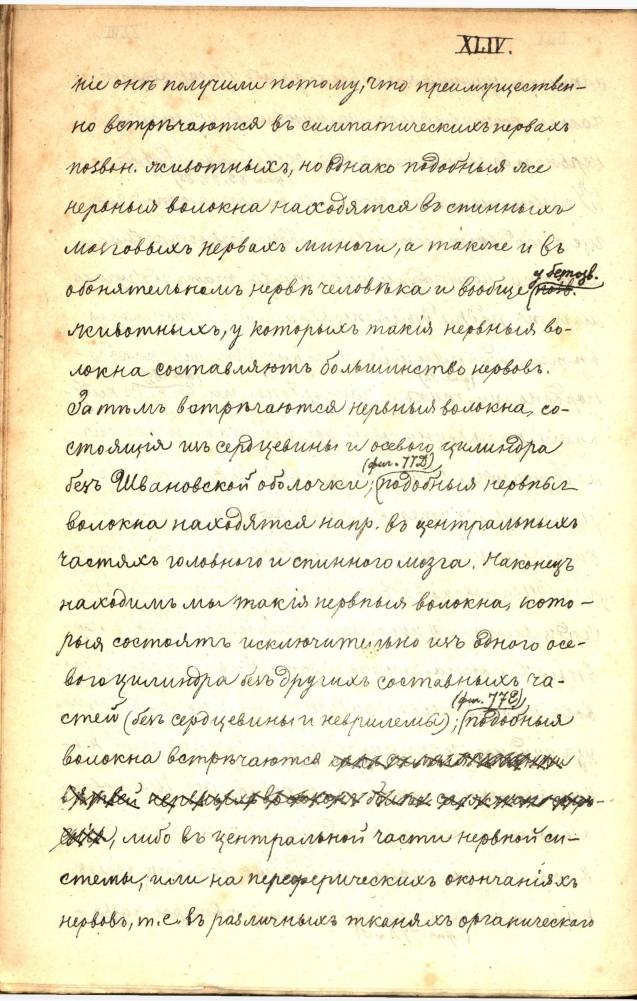 XLIV.
ніе онѣ получили потому, что преимуществен-
но встрѣчаются въ симпатическихъ нервахъ
позвон. животныхъ, но однако подобныя же
нервныя волокна находятся въ спинныхъ
мозговыхъ нервахъ миноги, а также и въ
у безпозв.
обонятельномъ нервѣ человѣка и вообще
животныхъ, у которыхъ такія нервныя во-
локна составляютъ большинство нервовъ.
Затѣмъ встрѣчаются нервныя волокна, со-
стоящія изъ сердцевины и осевого цилиндра
(фиг. 77D)
безъ Швановской оболочки; подобныя нервныя
волокна находятся напр. въ центральныхъ
частяхъ головного и спинного мозга. Наконецъ
находимъ мы такія нервныя волокна, кото-
рыя состоятъ исключительно изъ одного осе-
вого цилиндра безъ другихъ составныхъ ча-
(фиг. 77E)
стей (безъ сердцевины и неврилемы); подобныя
волокна встрѣчаются
либо въ центральной части нервной си-
стемы, или на переферическихъ окончаніяхъ
нервовъ, т.е. въ различныхъ тканяхъ органическаго